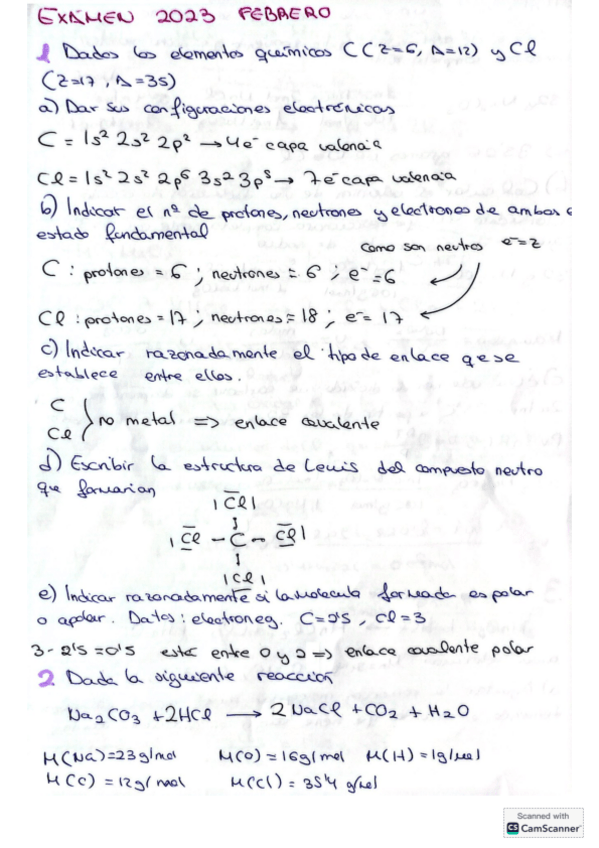 EXÁMEN 2023 FEBRERO
1 Dados los elementos químicos C (Z=6, A=12) y Cl
(Z=17, A=35)
a) Dar sus configuraciones electrónicas
C = 1s² 2s² 2p² → 4e⁻ capa valencia
Cl = 1s² 2s² 2p⁶ 3s² 3p⁵ → 7e⁻ capa valencia
b) Indicar el nº de protones, neutrones y electrones de ambos e
estado fundamental
como son neutros e⁻=Z
C : protones = 6 ; neutrones = 6 ; e⁻=6
Cl : protones = 17 ; neutrones = 18 ; e⁻= 17
c) Indicar razonadamente el tipo de enlace que se
establece entre ellos.
C
Cl
no metal => enlace covalente
d) Escribir la estructura de Lewis del compuesto neutro
que formarían
|Cl|
|Cl – C – Cl|
|Cl|
e) Indicar razonadamente si la molecula formada es polar
o apolar. Datos: electroneg. C=2'5, Cl=3
3-2'5=0'5 está entre 0 y 2 => enlace covalente polar
2. Dada la siguiente reacción
Na₂CO₃ + 2HCl → 2NaCl + CO₂ + H₂O
M(Na)=23g/mol M(O)=16g/mol M(H)=1g/mol
M(C) = 12g/mol M(Cl) = 35'4 g/mol
Scanned with
CS CamScanner